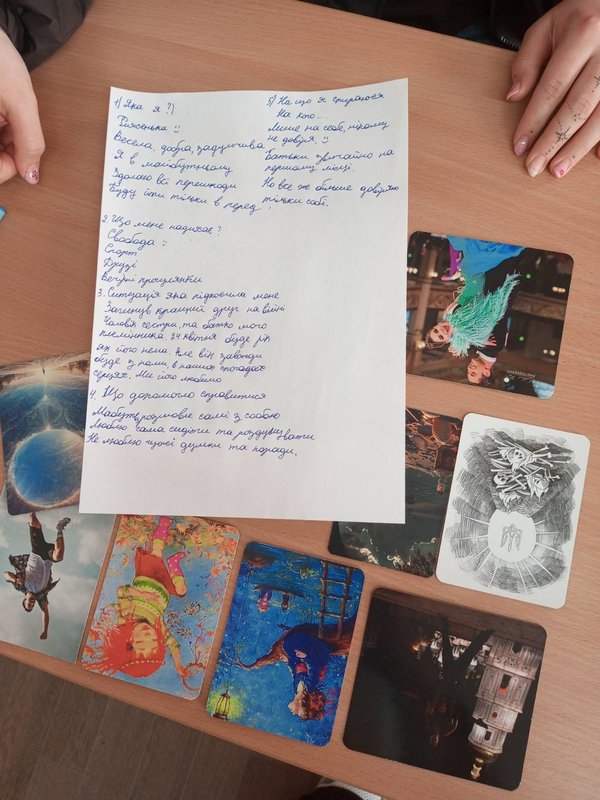 1) Яка я ?)
Риженька :)
Весела, добра, задумлива
Я в майбутньому
Здолаю всі перешкоди
Буду іти тільки в перед.
2. Що мене надихає?
Свобода :)
Спорт
Друзі
Вечірні прогулянки
3. Ситуація яка підкосила мене
Загинув кращий друг на війні
Чоловік сестри, та батько мого
племінника 24 квітня буде рік
як його нема. Але він завжди
буде з нами, в наших спогадах
серцях. Ми його любимо
4. Що допомогло справитися
Мабуть розмови самі з собою
Люблю сама сидіти та роздумувати
Не люблю чужої думки та поради.
5) На що я спираюся
На кого...
Лише на себе, нікому
не довіряю. :)
Батьки звичайно на
першому місці.
Но все же більше довіряю
тільки собі.